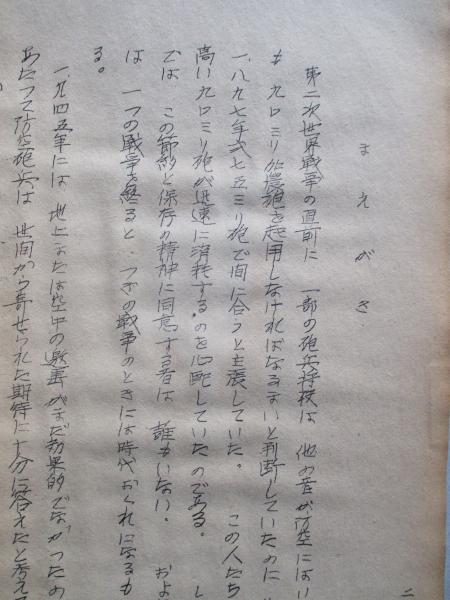 まえがき
第二次世界戦争の直前に 一部の砲兵将校は 他の者が防空には
も 九〇ミリ加農砲を起用しなければなるまいと判断していたのに
一八九七年式七五ミリ砲で間に合うと主張していた。 この人たち
高い九〇ミリ砲が迅速に消耗するのを心配していたのである。 し
では この節約と保存の精神に同意する者は 誰もいない。 およ
は 一つの戦争を終ると つぎの戦争のときには時代おくれになるも
る。
一九四五年には 地上または空中の邀撃がまだ効果的でなかつたの
あたつて防空砲兵は 世間から寄せられた期待に十分に答えたと考え
二